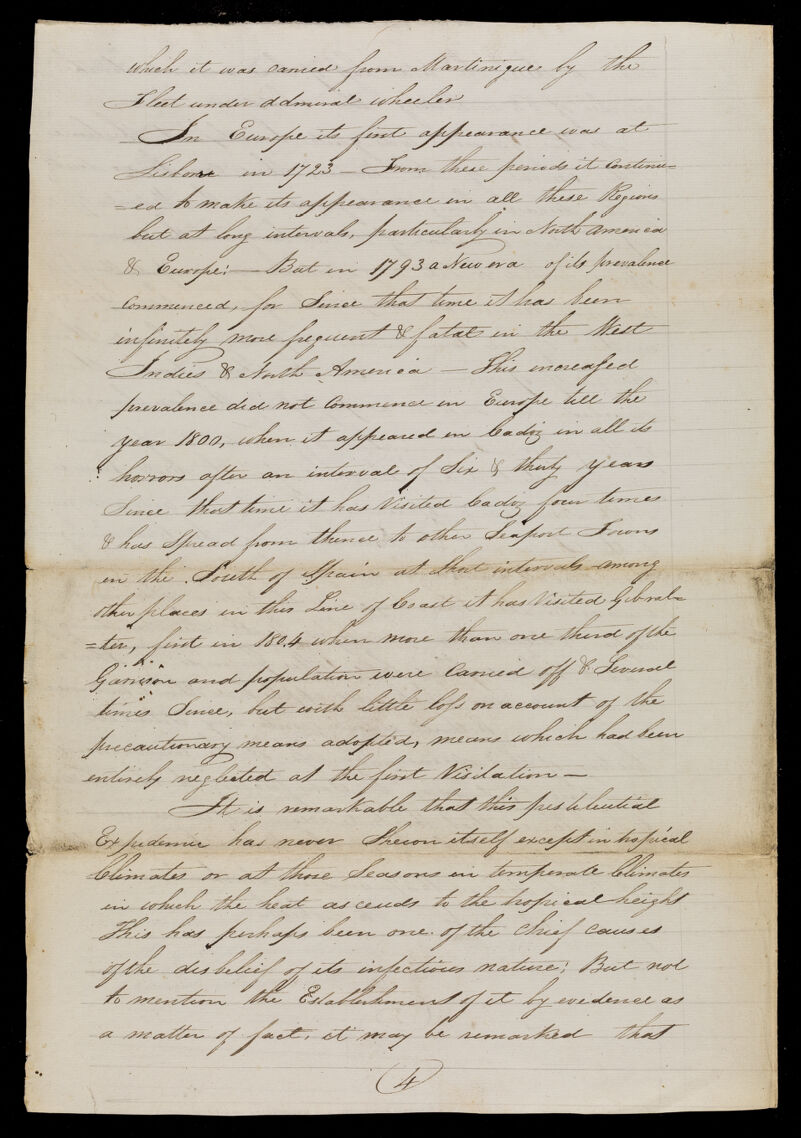 which it was carried from Martinique by the
Fleet under admiral wheeler
In Europe its first appearance was at
Lisbone in 1723 — From these periods it continu=
=ed to make its appearance in all these Regions
but at long intervals, particularly in North america
& Europe: — But in 1793 a New era of its prevalence
Commenced, for Since that time it has been
infinitely more frequent & fatal in the West
Indies & North America — This increased
prevalence did not Commence in Europe till the
year 1800, when it appeared in Cadiz in all its
horrors after an interval of Six & thirty years
Since that time it has Visited Cadiz four times
& has Spread from thence to other Seaport Towns
in the South of Spain at Short intervals among
other places in this Line of Coast it has Visited Gibral=
=ter, first in 1804 when more than one third of the
Garrison and population were Carried off & Several
times Since, but with little loss on account of the
precautionary means adopted, means which had been
entirely neglected at the first Visitation —
It is remarkable that this pestilential
Expidemic has never Shewn itself except in tropical
Climates or at those Seasons in temperate Climates
in which the heat ascends to the tropical height
This has perhaps been one of the Chief Causes
of the disbelief of its infectious nature; But not
to mention the Establishment of it by evidence as
a matter of fact, it may be remarked that
4